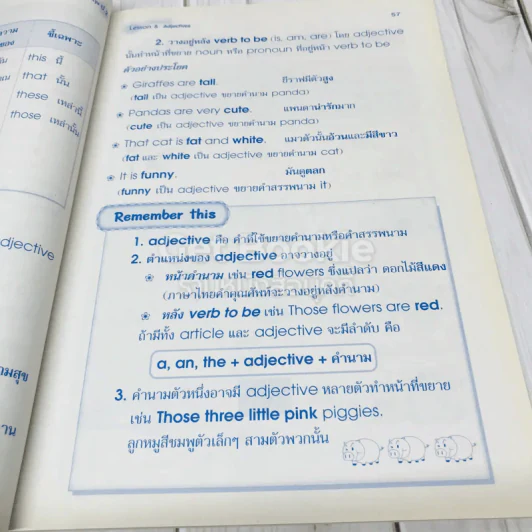 Lesson 6 Adjectives
57
2. วางอยู่หลัง verb to be (is, am, are) โดย adjective
นั้นทำหน้าที่ขยาย noun หรือ pronoun ที่อยู่หน้า verb to be
ตัวอย่างประโยค
Giraffes are tall. ยีราฟมีตัวสูง
(tall เป็น adjective ขยายคำนาม panda)
Pandas are very cute. แพนดาน่ารักมาก
(cute เป็น adjective ขยายคำนาม panda)
That cat is fat and white. แมวตัวนั้นอ้วนและมีสีขาว
(fat และ white เป็น adjective ขยายคำนาม cat)
It is funny. มันดูตลก
(funny เป็น adjective ขยายคำสรรพนาม it)
Remember this
1. adjective คือ คำที่ใช้ขยายคำนามหรือคำสรรพนาม
2. ตำแหน่งของ adjective อาจวางอยู่
หน้าคำนาม เช่น red flowers ซึ่งแปลว่า ดอกไม้สีแดง
(ภาษาไทยคำคุณศัพท์จะวางอยู่หลังคำนาม)
หลัง verb to be เช่น Those flowers are red.
ถ้ามีทั้ง article และ adjective จะมีลำดับ คือ
a, an, the + adjective + คำนาม
3. คำนามตัวหนึ่งอาจมี adjective หลายตัวทำหน้าที่ขยาย
เช่น Those three little pink piggies.
ลูกหมูสีชมพูตัวเล็กๆ สามตัวพวกนั้น
ชี้เฉพาะ
this นี้
that นั้น
these เหล่านี้
those เหล่านั้น
djective